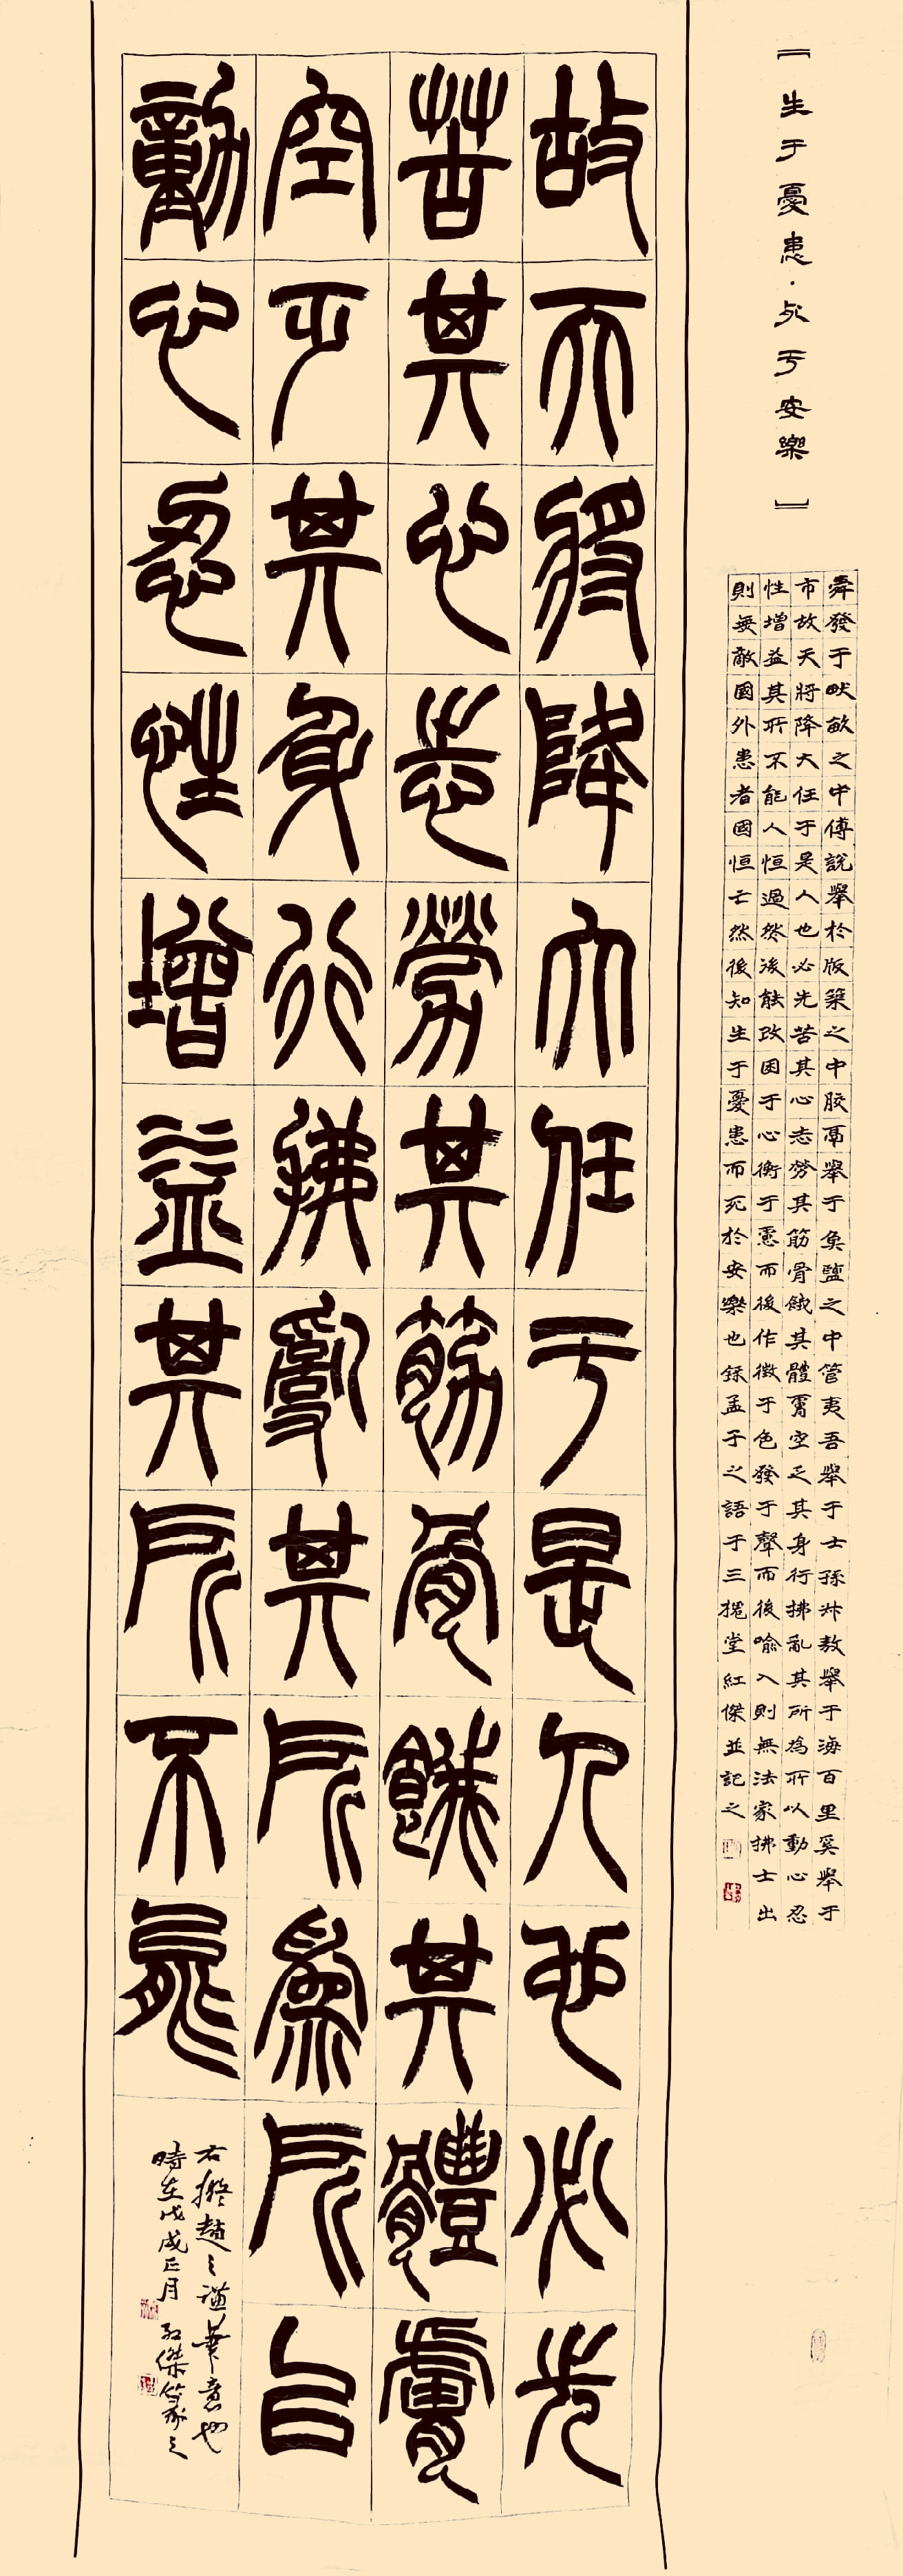 『生于憂患·死于安樂』
舜發于畎畝之中傅說舉於版築之中胶鬲舉于魚鹽之中管夷吾舉于士孫叔敖舉于海百里奚舉于
市故天將降大任于是人也必先苦其心志勞其筋骨餓其體膚空乏其身行拂亂其所為所以動心忍
性增益其所不能人恒過然後能改困于心衡于慮而後作徵于色發于聲而後喻入則無法家拂士出
則無敵國外患者國恒亡然後知生于憂患而死於安樂也錄孟子之語于三槐堂紅傑並記之
故天將降大任于是人也必先
苦其心志勞其筋骨餓其體膚
空乏其身行拂亂其所為所以
動心忍性增益其所不能
右擬趙之謙筆意也
時在戊戌正月 紅傑篆之